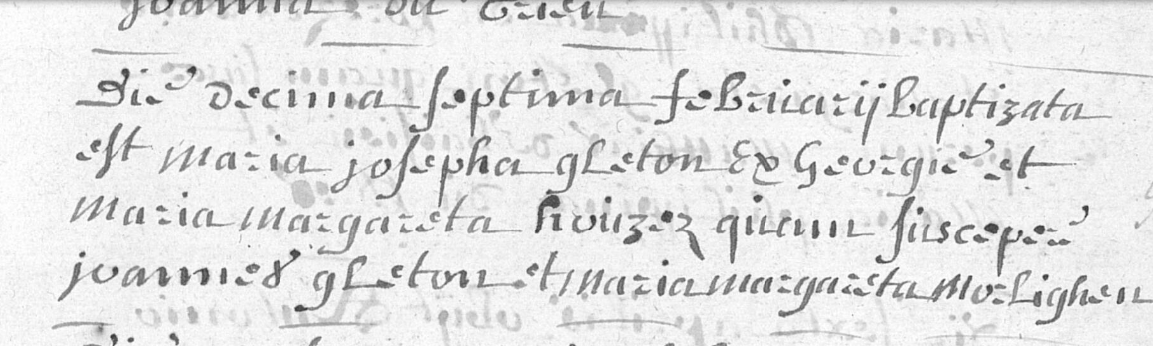 joanna du Trieu
Die decima septima februarij baptizata
est maria josepha gleton ex Georgie et
maria margareta houzez quam suscepere
joannes gleton et maria margareta morlighen